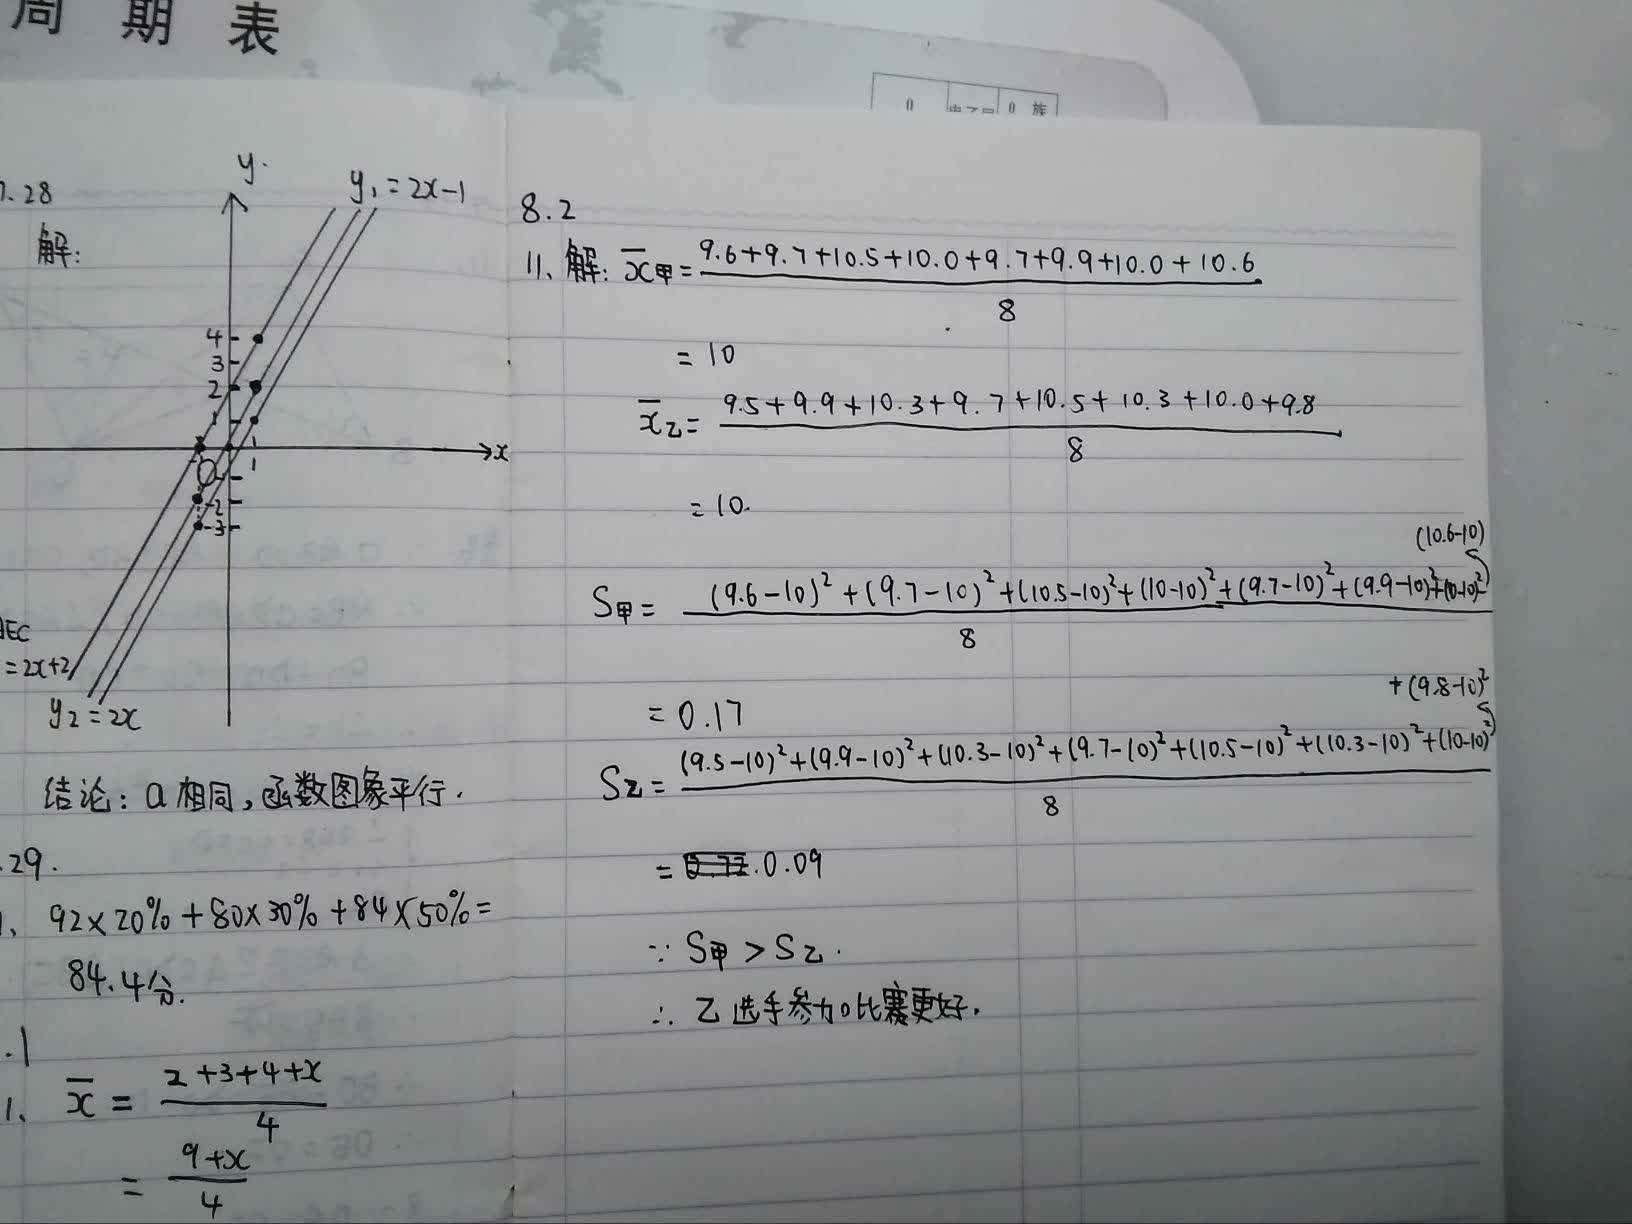 周期表
0 0 族
7.28
解:
y
y₁=2x-1
4
3
2
1
x
1
-2
-3
=2x+2
y₂=2x
结论:a相同,函数图象平行.
.29.
1、92×20%+80×30%+84×50%=
84.4分.
.1
1、x̄=(2+3+4+x)/4
=(9+x)/4
8.2
11、解:x̄甲=(9.6+9.7+10.5+10.0+9.7+9.9+10.0+10.6)/8
=10
x̄乙=(9.5+9.9+10.3+9.7+10.5+10.3+10.0+9.8)/8
=10.
(10.6-10)
S甲=((9.6-10)²+(9.7-10)²+(10.5-10)²+(10-10)²+(9.7-10)²+(9.9-10)²+(10-10)²)/8
=0.17
+(9.8-10)²
S乙=((9.5-10)²+(9.9-10)²+(10.3-10)²+(9.7-10)²+(10.5-10)²+(10.3-10)²+(10-10)²)/8
=0.09
∵S甲>S乙.
∴乙选手参加比赛更好.